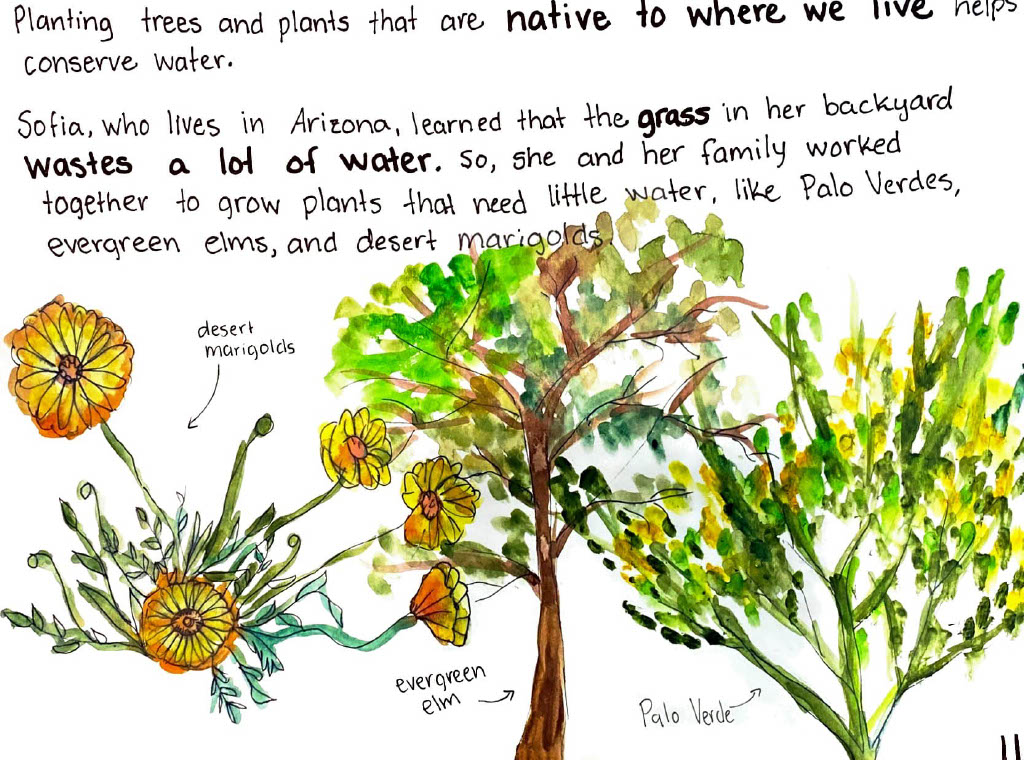 Planting trees and plants that are native to where we live helps
conserve water.
Sofia, who lives in Arizona, learned that the grass in her backyard
wastes a lot of water. So, she and her family worked
together to grow plants that need little water, like Palo Verdes,
evergreen elms, and desert marigolds.
desert
marigolds
evergreen
elm
Palo Verde
11